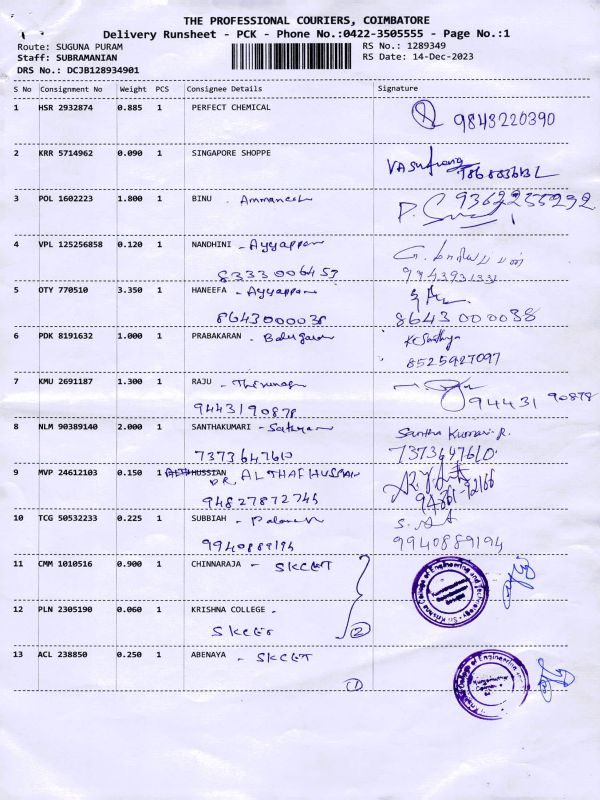 THE PROFESSIONAL COURIERS, COIMBATORE
Delivery Runsheet - PCK - Phone No.:0422-3505555 - Page No.:1
Route: SUGUNA PURAM
RS No.: 1289349
Staff: SUBRAMANIAN
RS Date: 14-Dec-2023
DRS No.: DCJB128934901
S No Consignment No Weight PCS Consignee Details Signature
1 HSR 2932874 0.885 1 PERFECT CHEMICAL
9843220390
2 KRR 5714962 0.090 1 SINGAPORE SHOPPE
3 POL 1602223 1.800 1 BINU - 9362255292
4 VPL 125256858 0.120 1 NANDHINI - Ayyappan
8333006453 9943931331
5 OTY 770510 3.350 1 HANEEFA - Ayyappan
8643000038 8643000038
6 PDK 8191632 1.000 1 PRABAKARAN -
8525927097
7 KMU 2691187 1.300 1 RAJU -
9443190878 94431 90878
8 NLM 90389140 2.000 1 SANTHAKUMARI - Santha Kumari.R.
7373647610 7373647610
9 MVP 24612103 0.150 1 HUSSIAN DR. ALTHAF HUSSAIN
94827872745
10 TCG 50532233 0.225 1 SUBBIAH -
9940889194 9940889194
11 CMM 1010516 0.900 1 CHINNARAJA - SKCET
12 PLN 2305190 0.060 1 KRISHNA COLLEGE -
SKCET 2
Sri Krishna College of Engineering and Technology
13 ACL 238850 0.250 1 ABENAYA - SKCET
1
College of Engineering and